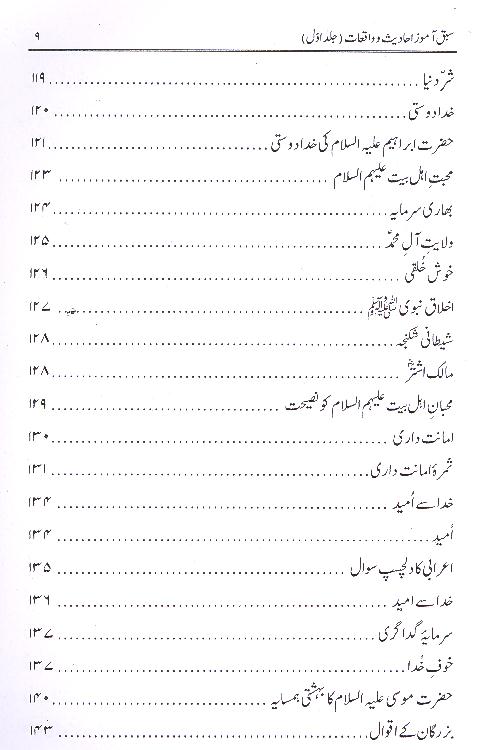 سبق آموز احادیث و واقعات (جلد اوّل) ۹
شرّ دنیا ........ ۱۱۹
خدا دوستی ........ ۱۲۰
حضرت ابراہیم علیہ السلام کی خدا دوستی ........ ۱۲۱
محبت اہل بیت علیہم السلام ........ ۱۲۳
بھاری سرمایہ ........ ۱۲۴
ولایت آلِ محمدؑ ........ ۱۲۵
خوش خُلقی ........ ۱۲۶
اخلاق نبوی ﷺ ........ ۱۲۷
شیطانی شکنجہ ........ ۱۲۸
مالک اشترؓ ........ ۱۲۸
محبانِ اہل بیت علیہم السلام کو نصیحت ........ ۱۲۹
امانت داری ........ ۱۳۰
ثمرۂ امانت داری ........ ۱۳۱
خدا سے اُمید ........ ۱۳۴
اُمید ........ ۱۳۴
اعرابی کا دلچسپ سوال ........ ۱۳۵
خدا سے امید ........ ۱۳۶
سرمایۂ گداگری ........ ۱۳۷
خوفِ خُدا ........ ۱۳۷
حضرت موسی علیہ السلام کا بہشتی ہمسایہ ........ ۱۴۰
بزرگان کے اقوال ........ ۱۴۳